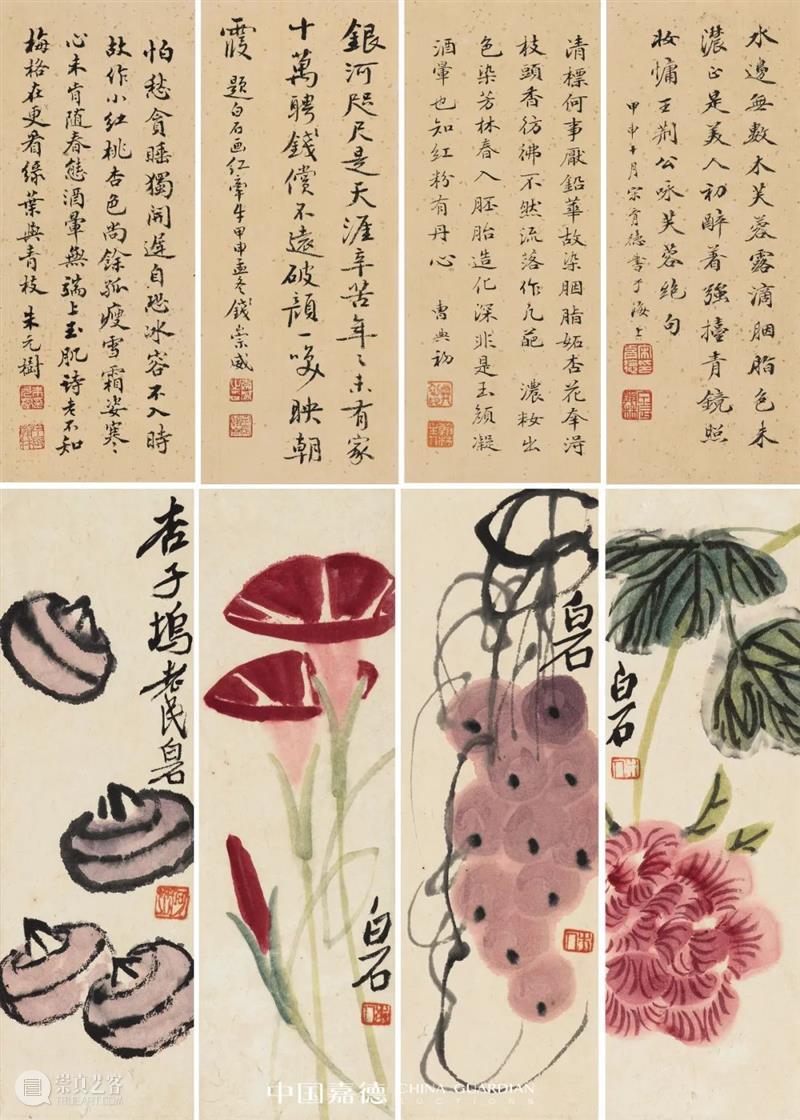 水邊無數木芙蓉露滴胭脂色未
濃正是美人初醉着強擡青鏡照
妝慵王荊公咏芙蓉絕句
甲申十月宋育德書于海上
清標何事厭鉛華故染胭脂妬杏花奪得
枝頭香彷彿不然流落作凡葩 濃妝出
色染芳林春入胚胎造化深非是玉顏凝
酒暈也知紅粉有丹心 曹典初
銀河咫尺是天涯辛苦年〻未有家
十萬聘錢償不遠破顏一笑映朝
霞 題白石画紅牽牛甲申孟冬錢崇威
怕愁貪睡獨開遲自恐冰容不入時
故作小紅桃杏色尚餘孤瘦雪霜姿寒
心未肯隨春態酒暈無端上玉肌詩老不知
梅格在更看綠葉與青枝 朱元樹
白石
白石
白石
杏子塢老民白石
崇真艺客
中国嘉德
CHINA GUARDIAN
AUCTIONS